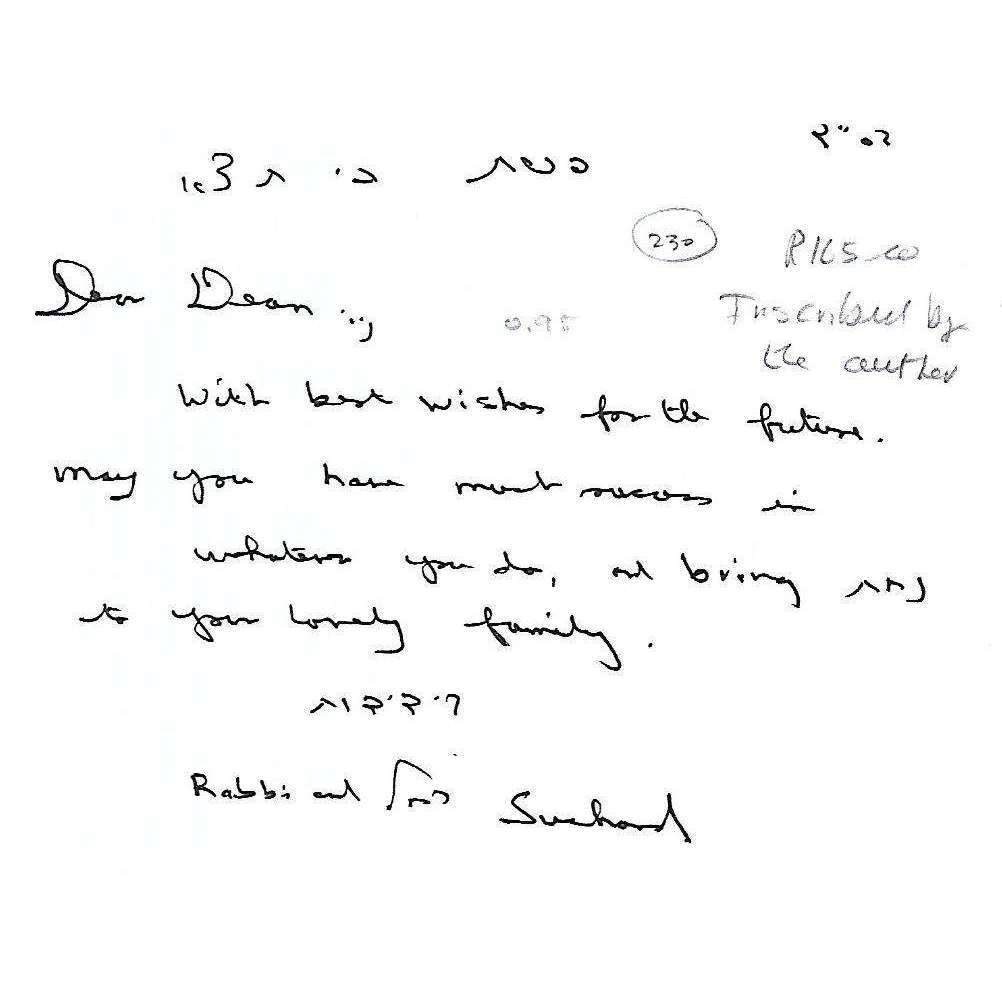 בס"ד
פשת כי תצא
230
Dear Dean נ"י
0.95
Inscribed by
the author
With best wishes for the future.
may you have much success in
whatever you do, and bring נחת
to your lovely family.
בידידות
Rabbi and Mrs